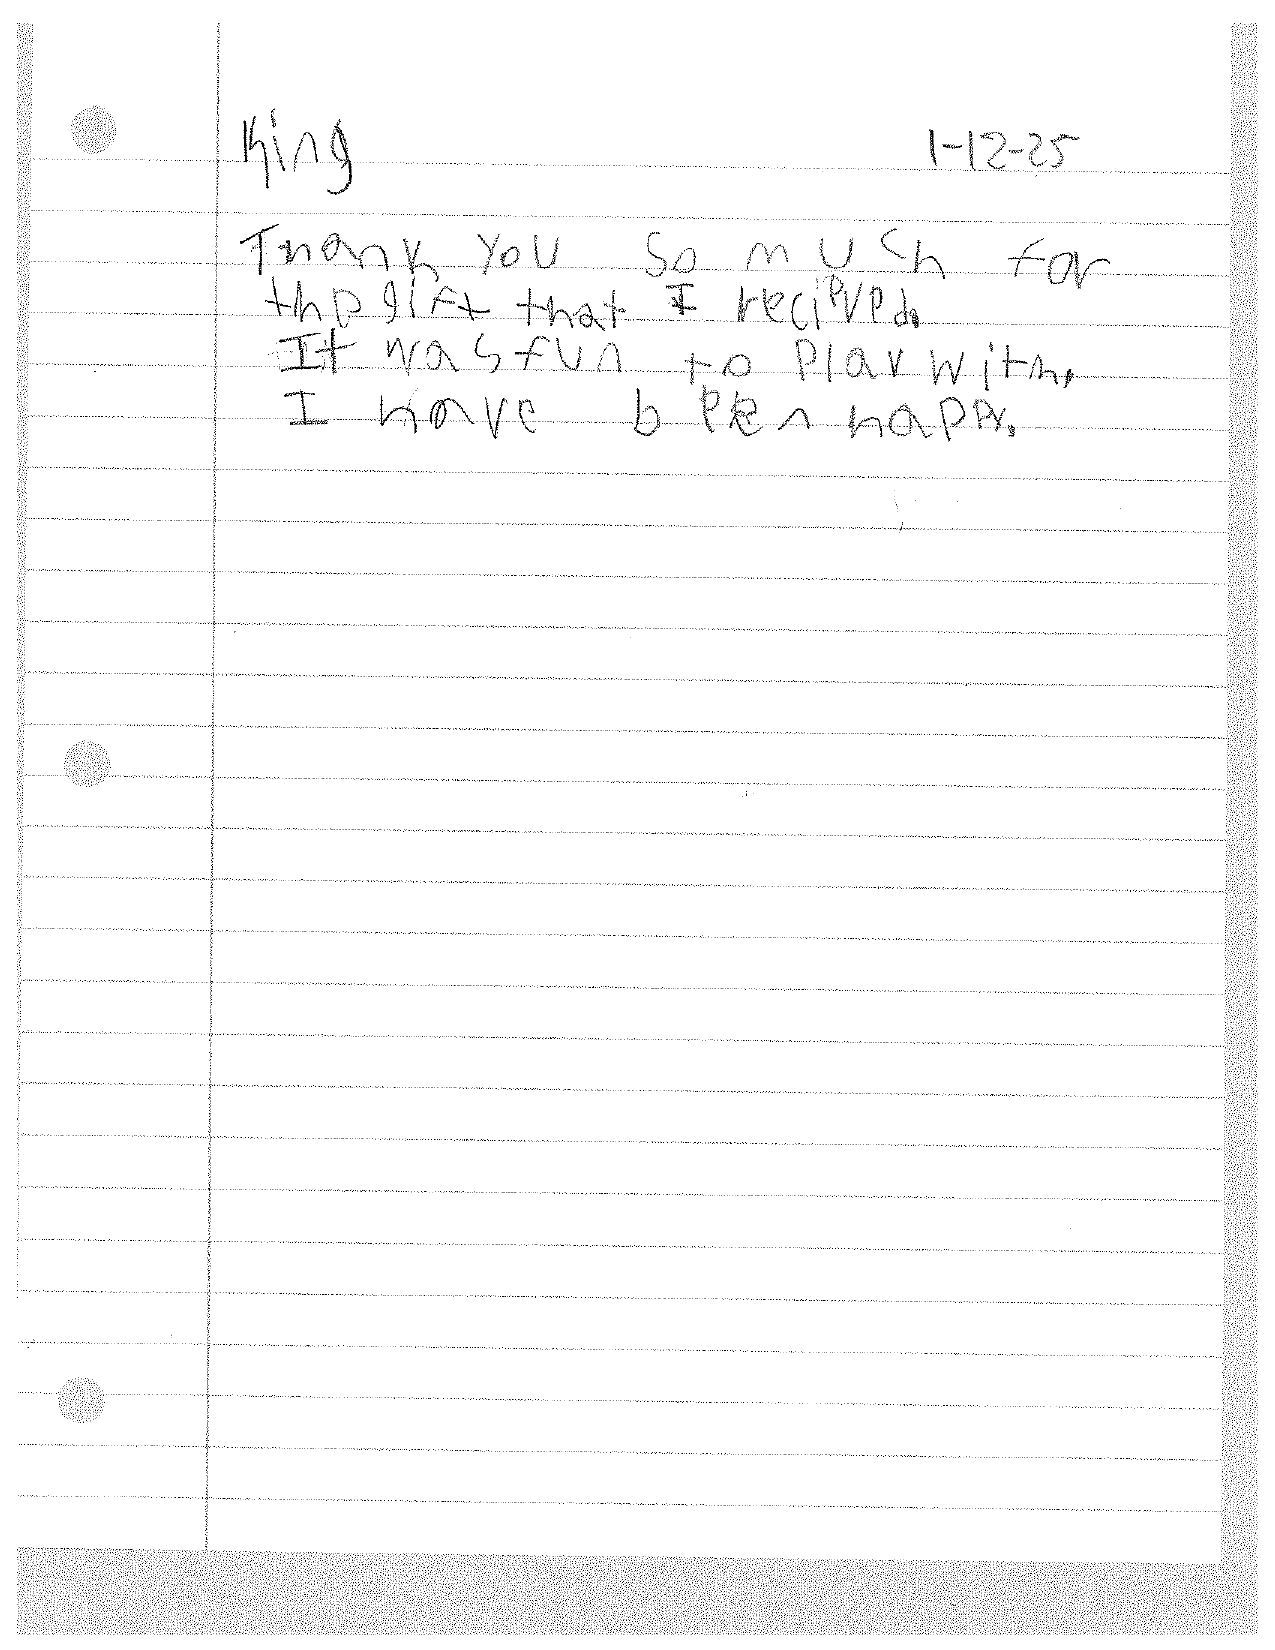 King 1-12-25
Thank you so much for
the gift that I recieved.
It was fun to play with.
I have been happy.